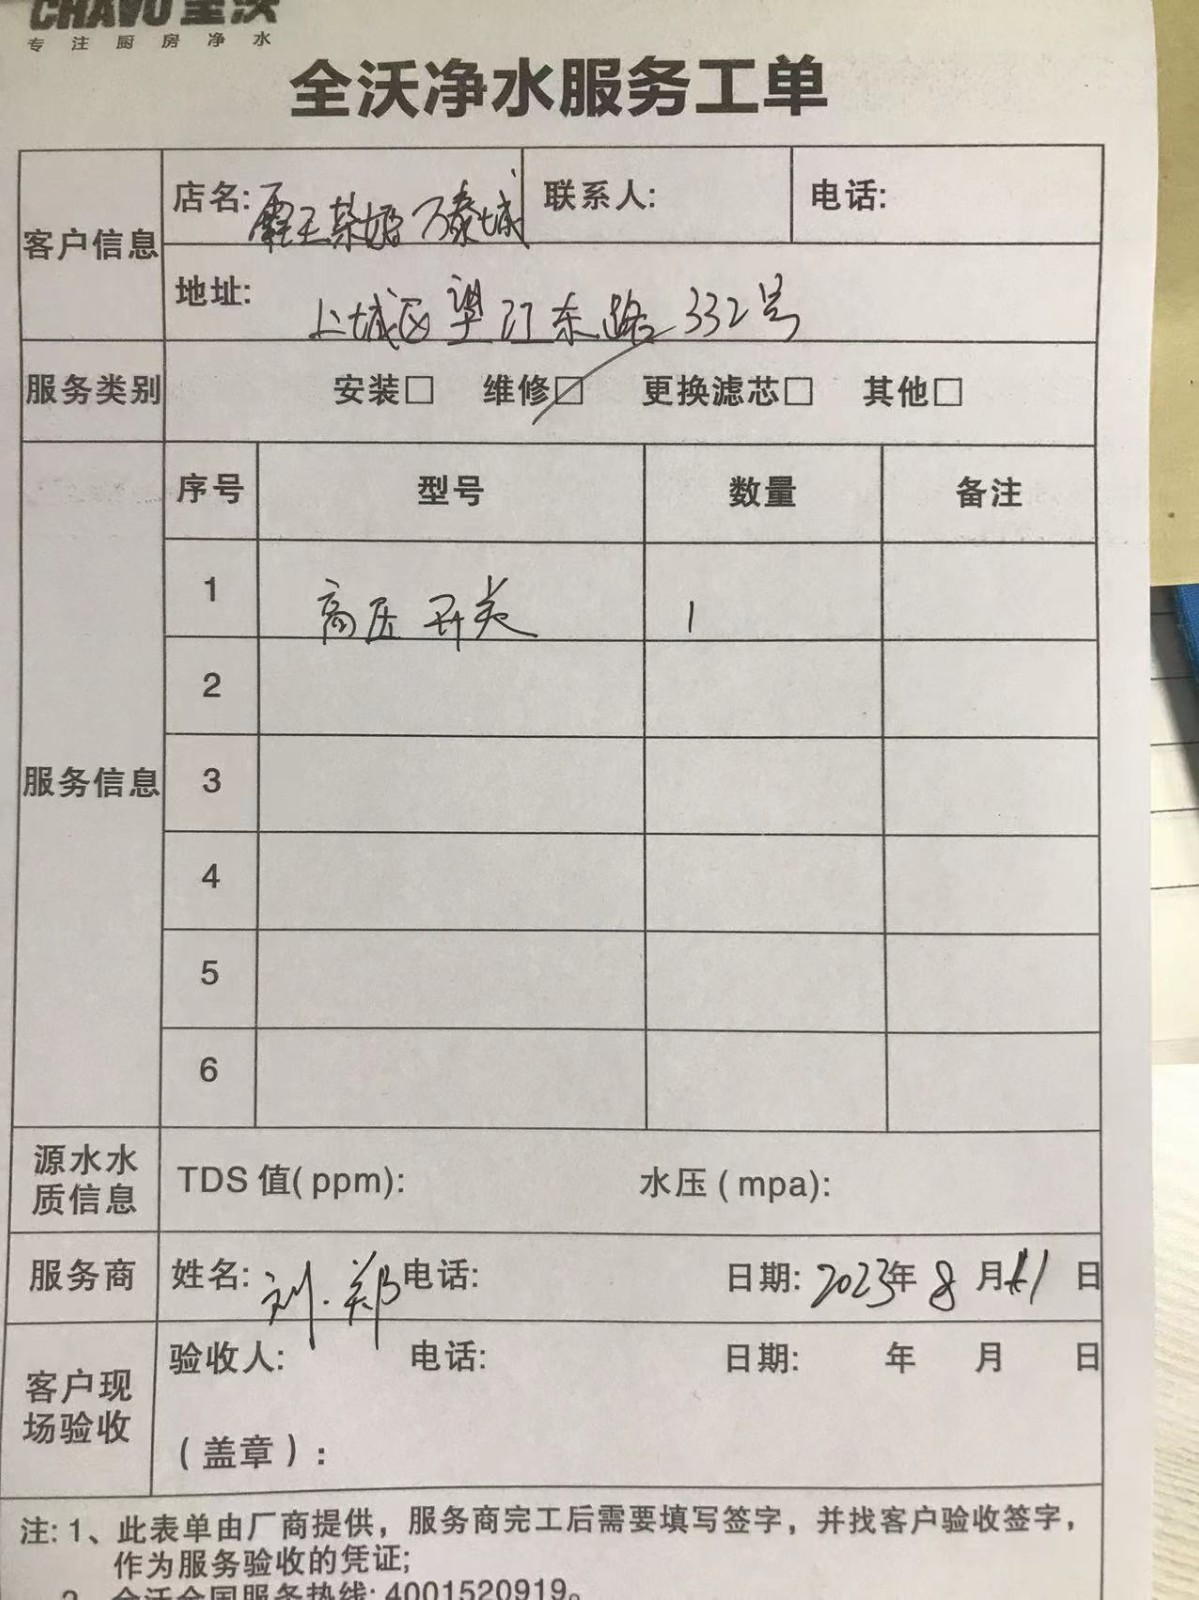 CHAVO 全沃
专注厨房净水
全沃净水服务工单
客户信息
店名: 霸王茶姬万泰城
联系人:
电话:
地址: 上城区望江东路332号
服务类别
安装□ 维修☑ 更换滤芯□ 其他□
服务信息
序号 型号 数量 备注
1 高压开关 1
2
3
4
5
6
源水水
质信息
TDS 值(ppm): 水压(mpa):
服务商
姓名: 刘.郑 电话: 日期: 2023年8月 日
客户现
场验收
验收人: 电话: 日期: 年 月 日
(盖章):
注: 1、此表单由厂商提供，服务商完工后需要填写签字，并找客户验收签字，
作为服务验收的凭证;
2、全沃全国服务热线: 4001520919。